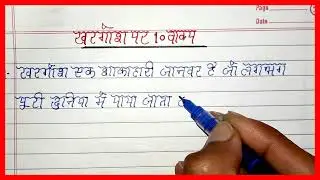 Page
Date
खरगोश पर 10 वाक्य
खरगोश एक शाकाहारी जानवर है जो लगभग
पूरी दुनिया में पाया जाता